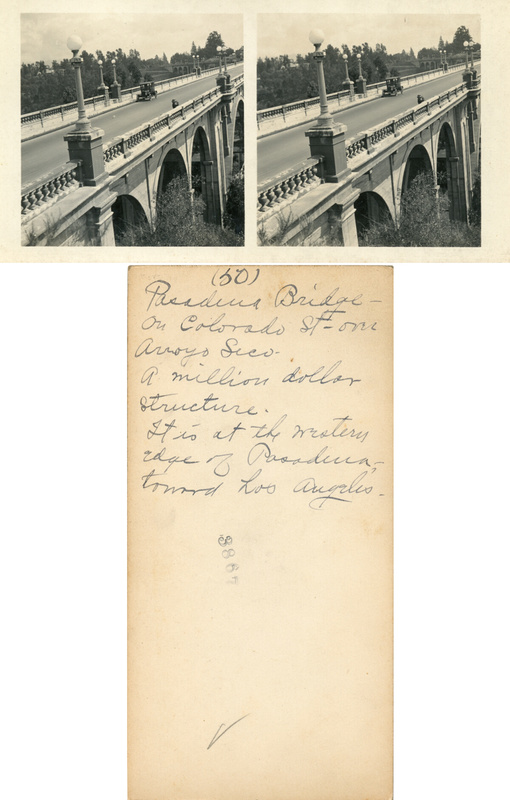 (50)
Pasadena Bridge -
On Colorado St - over
Arroyo Seco.
A million dollar
structure.
It is at the western
edge of Pasadena,
toward Los Angeles.
3867